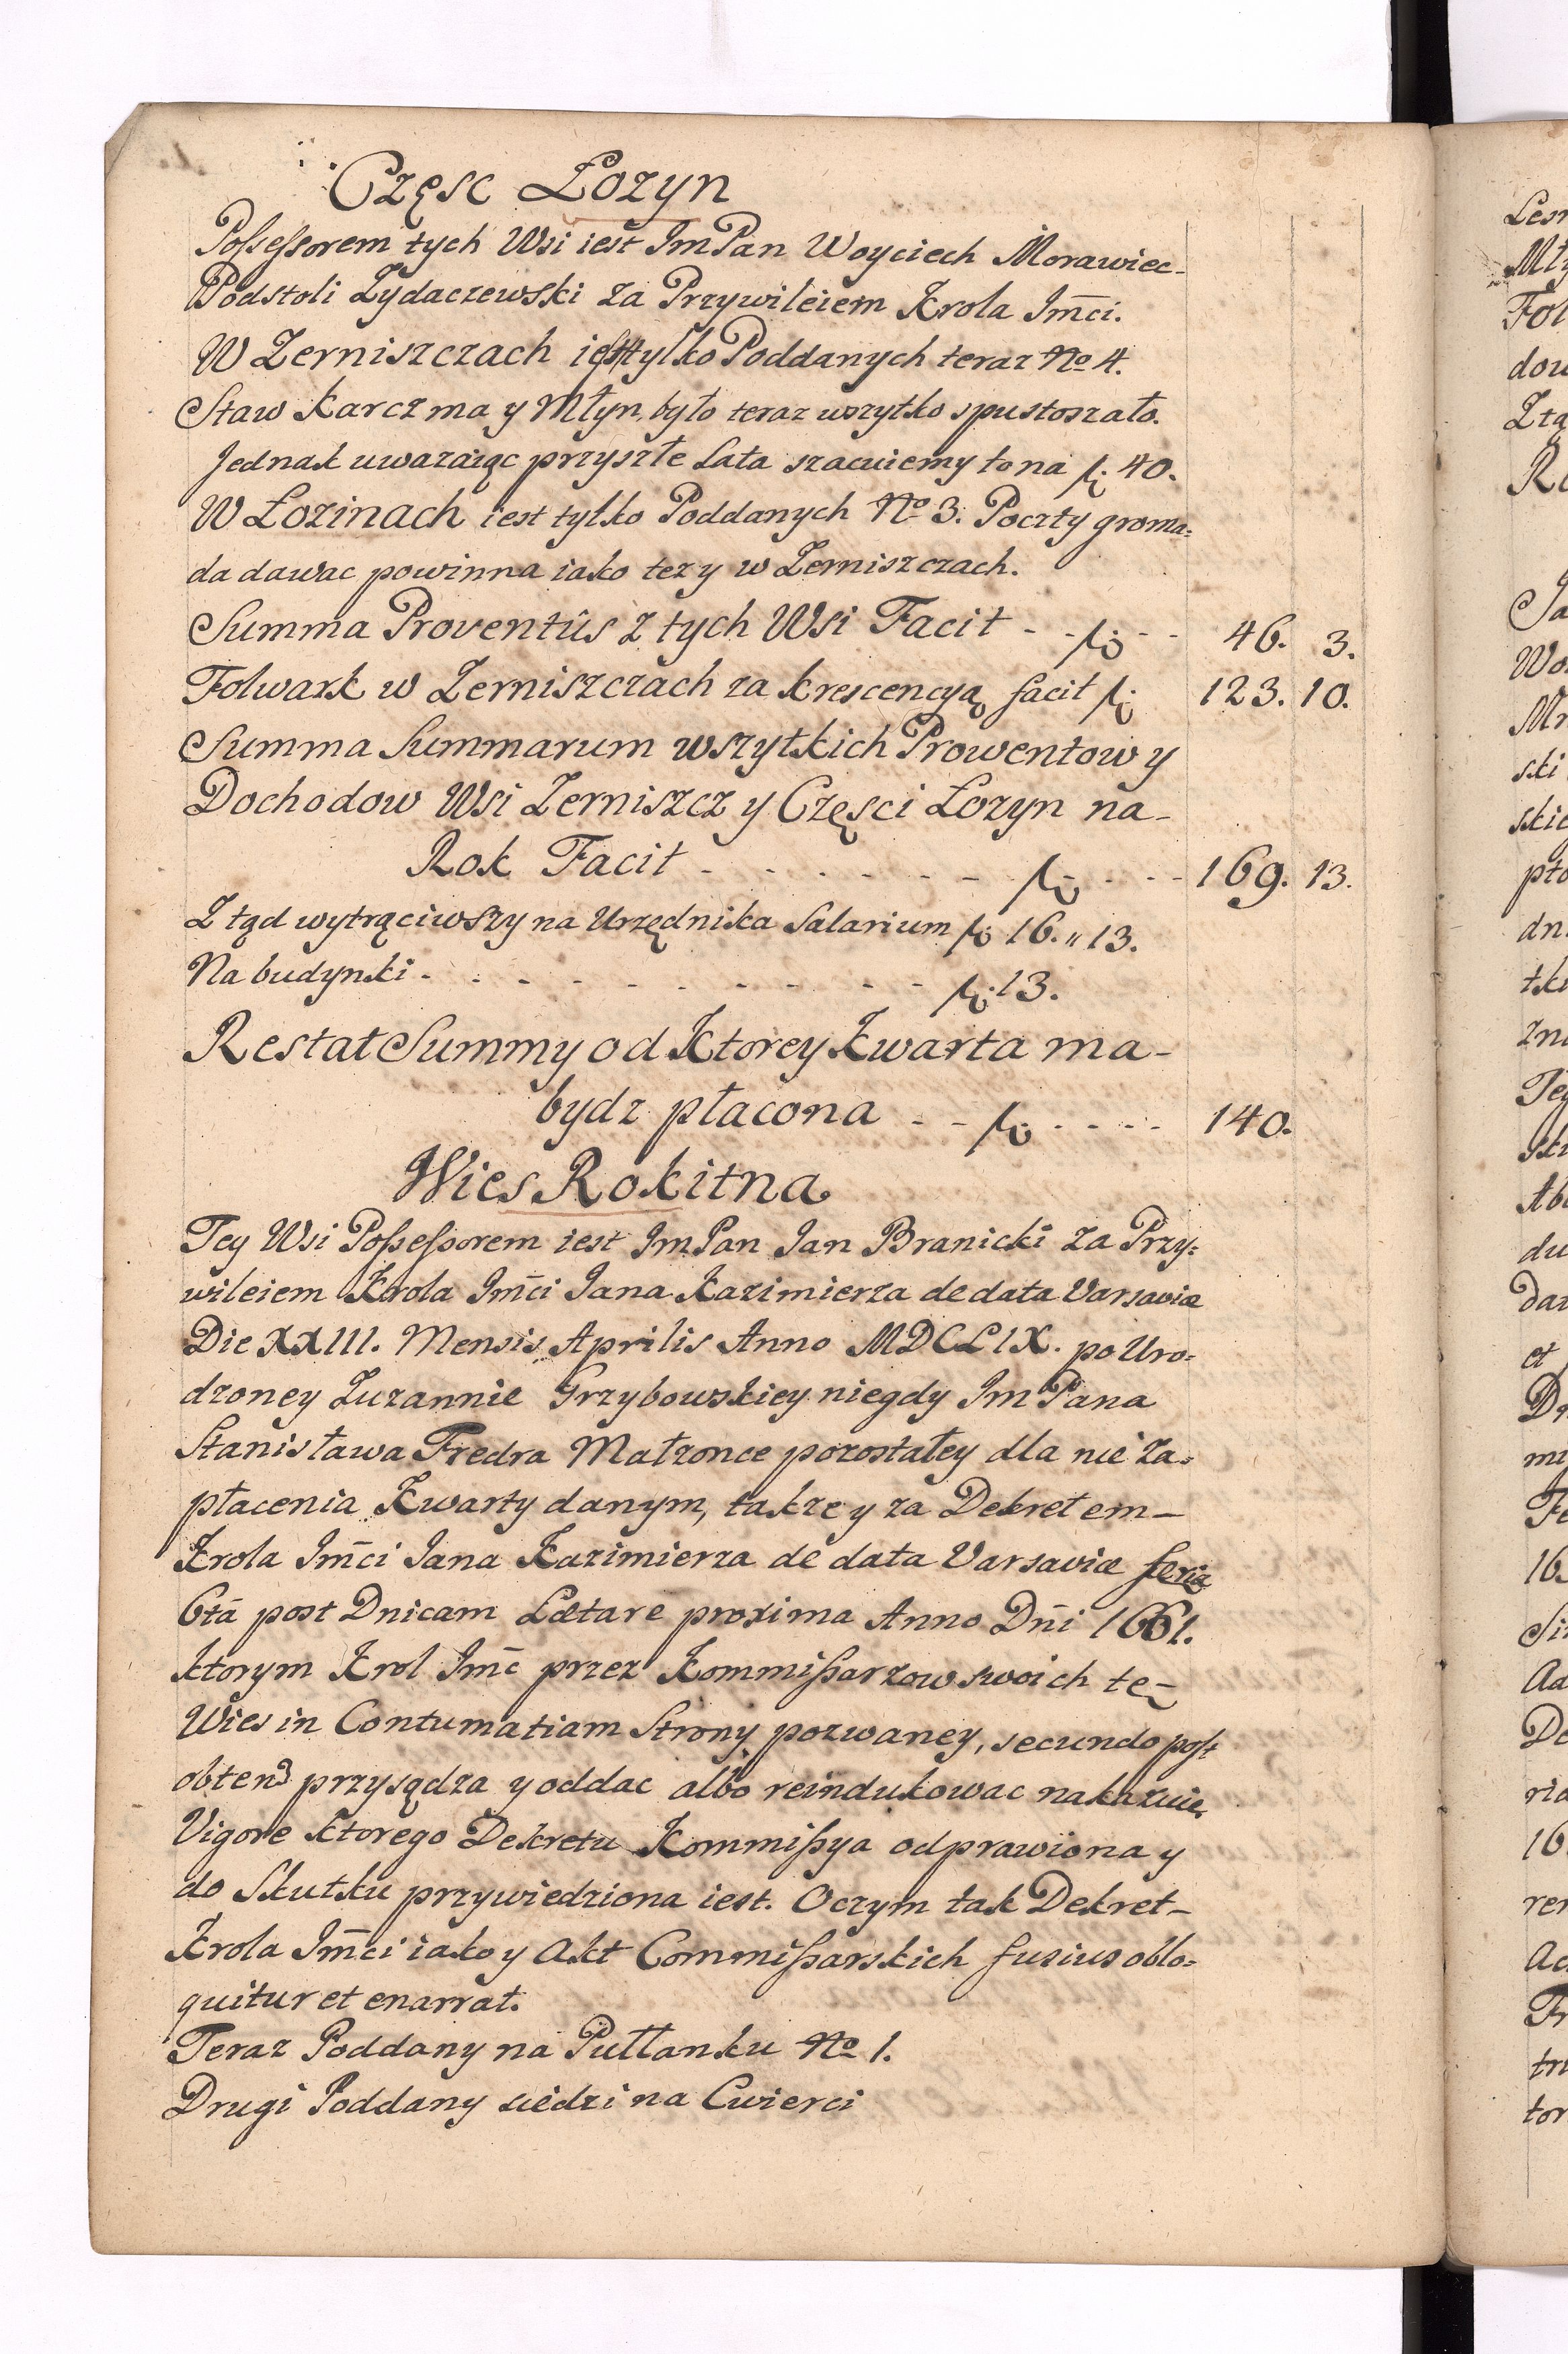 Częsc Łozyn
Possessorem tych Wsi iest ImPan Woyciech Morawiec-
Podstoli Zydaczewski za Przywileiem Krola Jm̄ci.
W Zerniszczach iest tylko Poddanych teraz No 4.
Staw Karczma y Młyn, było teraz wszytko spustoszało.
Jednak uwazaiąc przyszłe Lata szacuiemy to na fl. 40.
W Łozinach iest tylko Poddanych No 3. Poczty groma=
da dawac powinna iako tez y w Zerniszczach.
Summa Proventûs z tych Wsi Facit - - fl. - - 46. 3.
Folwark w Zerniszczach za krescencyą facit fl. 123. 10.
Summa Summarum wszytkich Prowentow y
Dochodow Wsi Zerniszcz y Części Łozyn na-
Rok Facit - - - - - - - fl. - - - 169. 13.
Z tąd wytrąciwszy na Urzędnika Salarium fl. 16. „ 13.
Na budynki - - - - - - - - - - fl. 13.
Restat Summy od Ktorey Kwarta ma-
bydz płacona - - fl. - - - - 140.
Wies Rokitna
Tey Wsi Possessorem iest ImPan Jan Branicki za Przy=
wileiem Krola Jm̄ci Jana Kazimierza de data Varsaviæ
Die XXIII. Mensis Aprilis Anno MDCLIX. po Uro=
dzoney Zuzannie Grzybowskiey niegdy Im Pana
Stanisława Fredra Małzonce pozostałey dla nie za=
płacenia Kwarty danym, takze y za Dekretem-
Krola Jm̄ci Jana Kazimierza de data Varsaviæ feria
6tā post Dnicam Lætare proxima Anno Dn̄i 1661.
ktorym Krol Jm̄c przez Kommissarzow swoich tę-
Wies in Contumatiam Strony pozwaney, secundo post
obtend przysądza y oddac albo reindukowac nakazuie
Vigore ktorego Dekretu Kommissya odprawiona y
do Skutku przywiedziona iest. Oczym tak Dekret-
Krola Jm̄ci iako y Akt Commissarskich fusius oblo=
quitur et enarrat.
Teraz Poddany na Pułłanku No 1.
Drugi Poddany siedzi na Cwierci